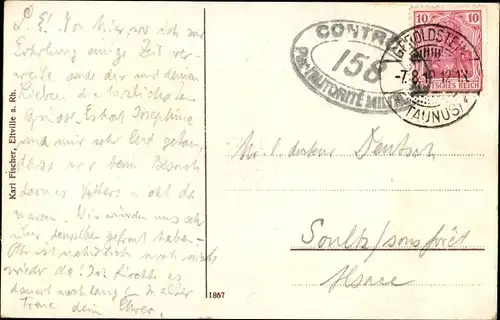 L. E! Von hier, wo ich zur
Erholung einige Zeit ver-
weile sende dir und deinen
Lieben die herzlichsten
Grüsse. Es hat Josephine
und mir sehr leid getan,
dass wir beim Besuch
deines Vaters nicht da
waren. Wir würden uns sehr
über denselben gefreut haben -
Ob er natürlich noch nicht
wieder da! Ich fürchte es
dauert noch lang. In alter
Treue dein
Karl Fischer, Eltville a. Rh.
1867
CONTRÔLÉ
158
Par AUTORITÉ MILITAIRE
10 10
DEUTSCHES REICH
GEROLDSTEIN
-7.8.19.12-1N
(TAUNUS)
Deutsch
Soultz/sous forêt
Alsace